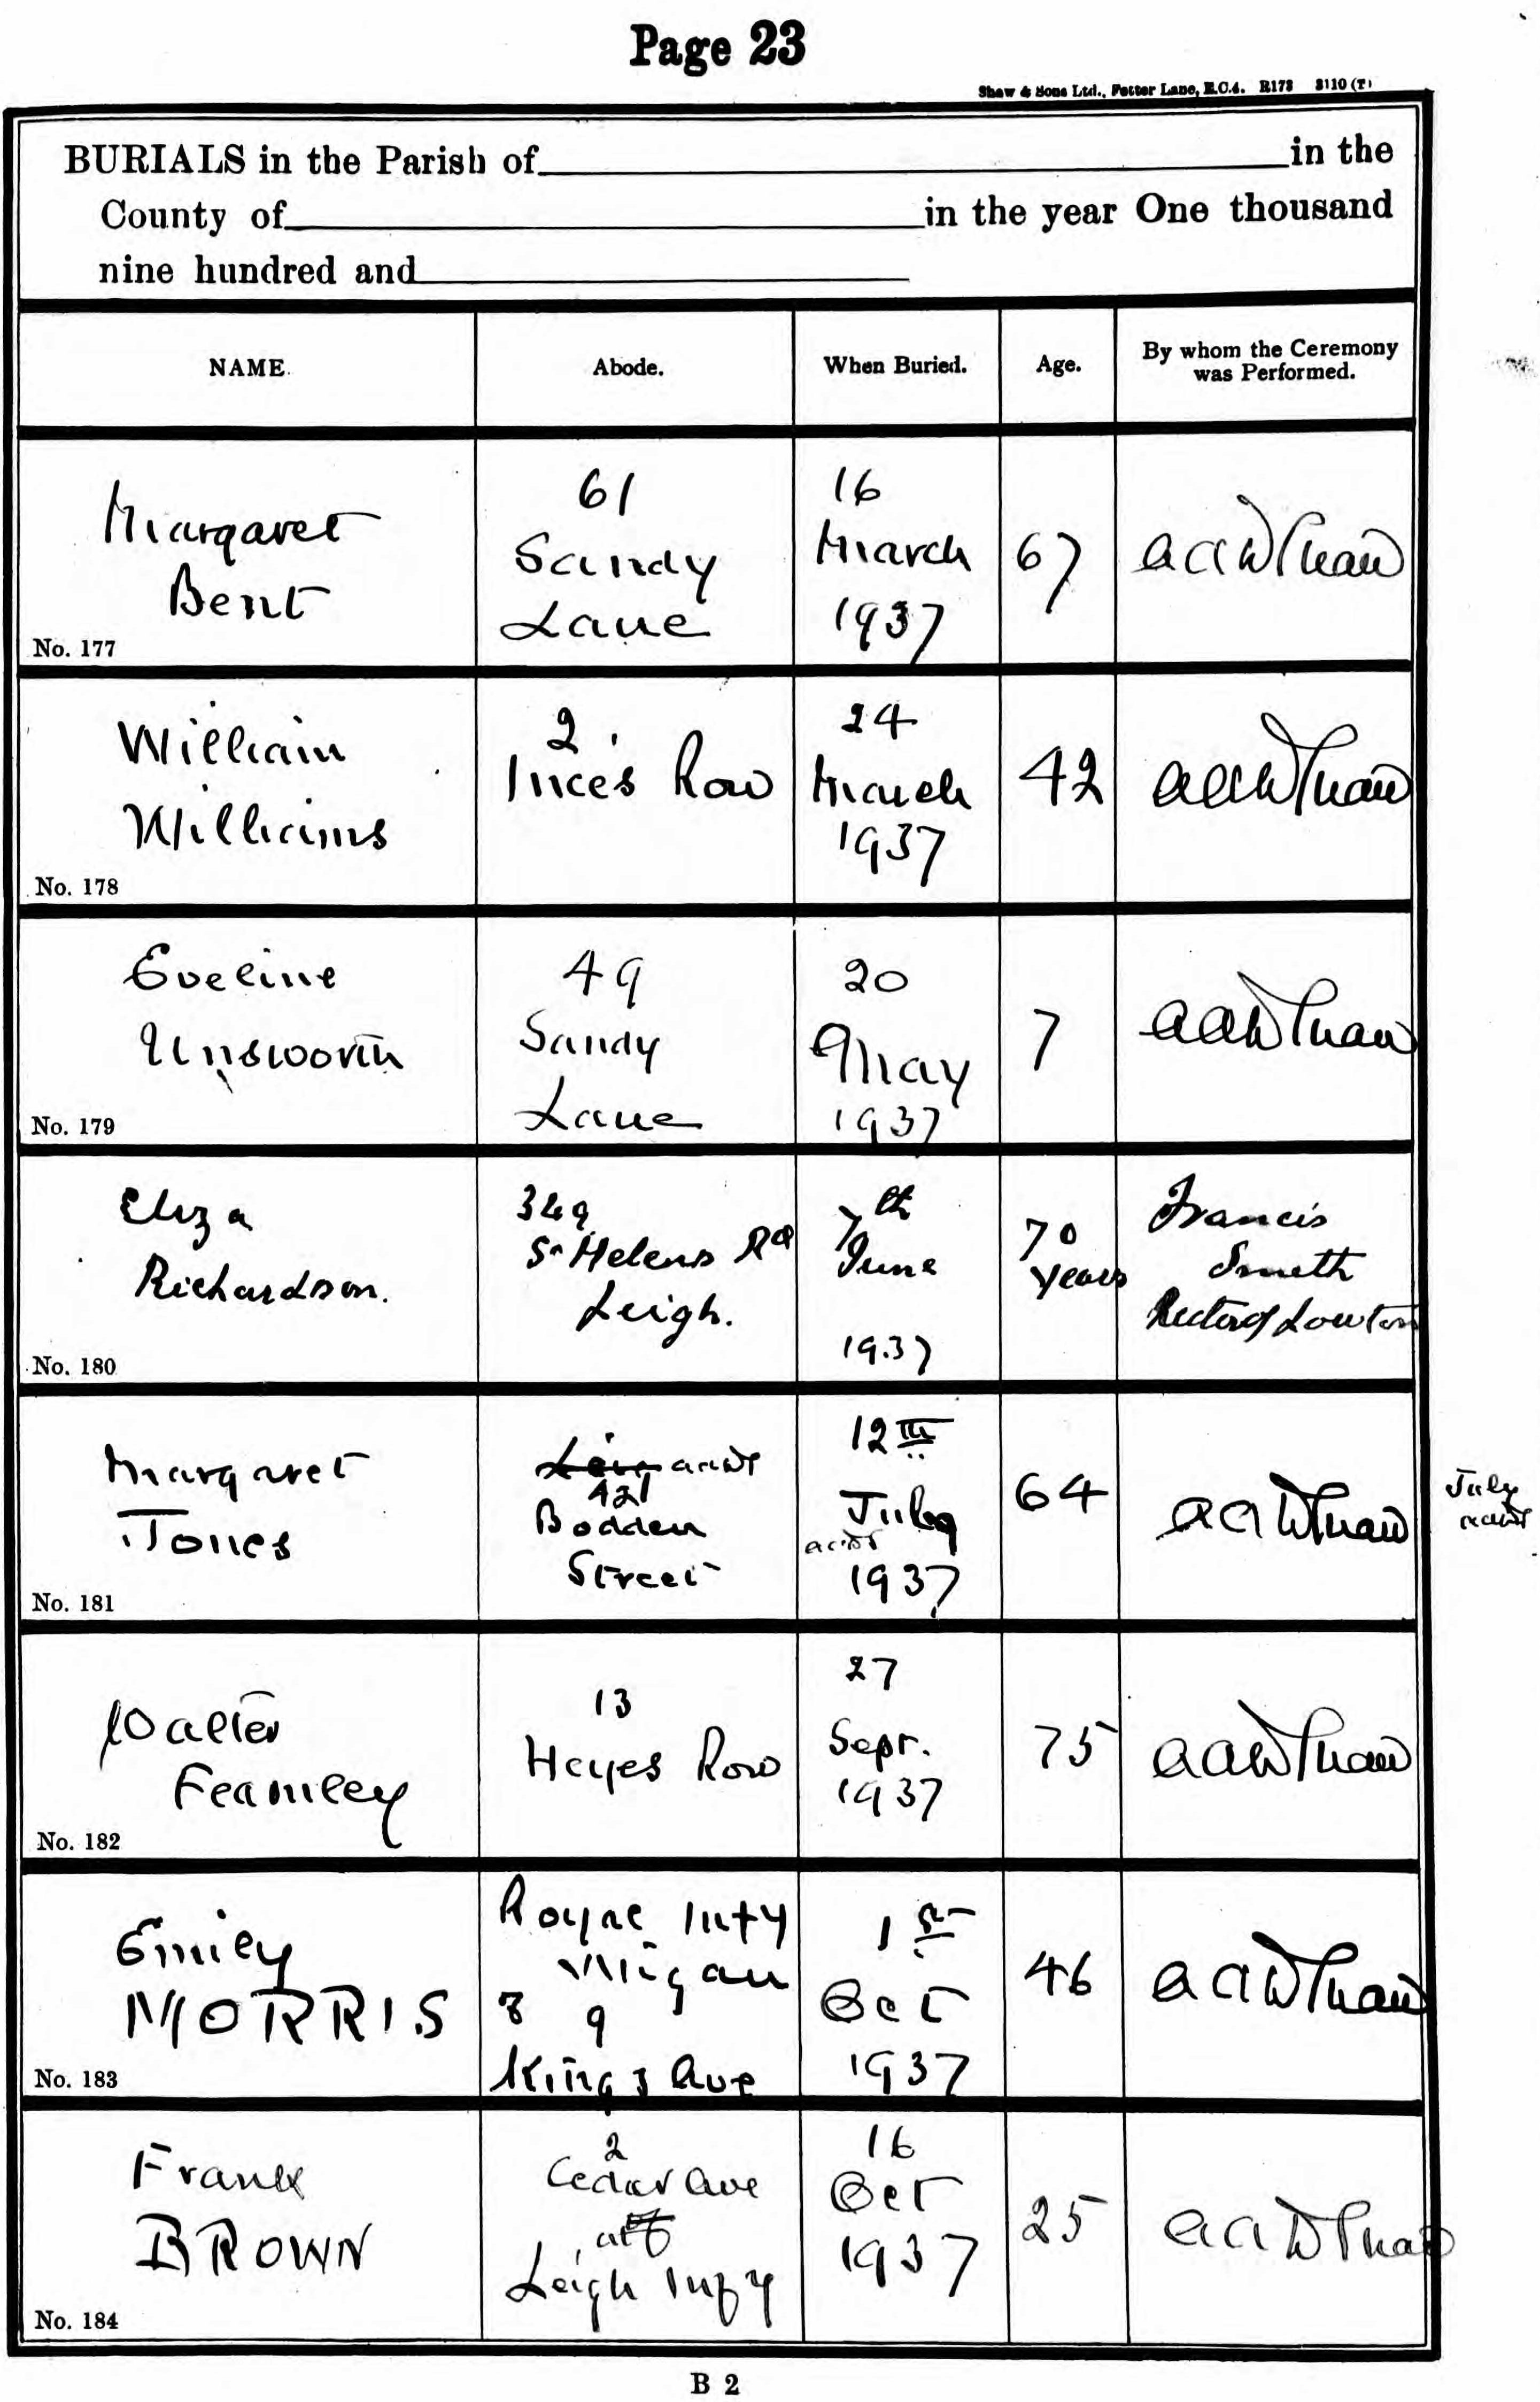 Page 23
Shaw & Sons Ltd., Fetter Lane, E.C.4. R173 3110 (T)
BURIALS in the Parish of in the
County of in the year One thousand
nine hundred and
NAME.
Abode.
When Buried.
Age.
By whom the Ceremony
was Performed.
Margaret
Bent
No. 177
61
Sandy
Lane
16
March
1937
67
AAWThaw
William
Williams
No. 178
2
Inces Row
24
March
1937
42
AAWThaw
Eveline
Unsworth
No. 179
49
Sandy
Lane
20
May
1937
7
AAWThaw
Eliza
Richardson.
No. 180
349
St Helens Rd
Leigh.
7th
June
1937
70
years
Francis
Smith
Rector of Lowton
Margaret
Jones
No. 181
AAWT
Bodden
Street
12th
July
AAWT
1937
64
AAWThaw
July
AAWT
Walter
Fearnley
No. 182
13
Heyes Row
27
Sepr.
1937
75
AAWThaw
Emily
MORRIS
No. 183
Royal Infy
Wigan
& 9
Kings Ave
1st
Oct
1937
46
AAWThaw
Frank
BROWN
No. 184
2
Cedar Ave
at
Leigh Infy
16
Oct
1937
25
AAWThaw
B 2